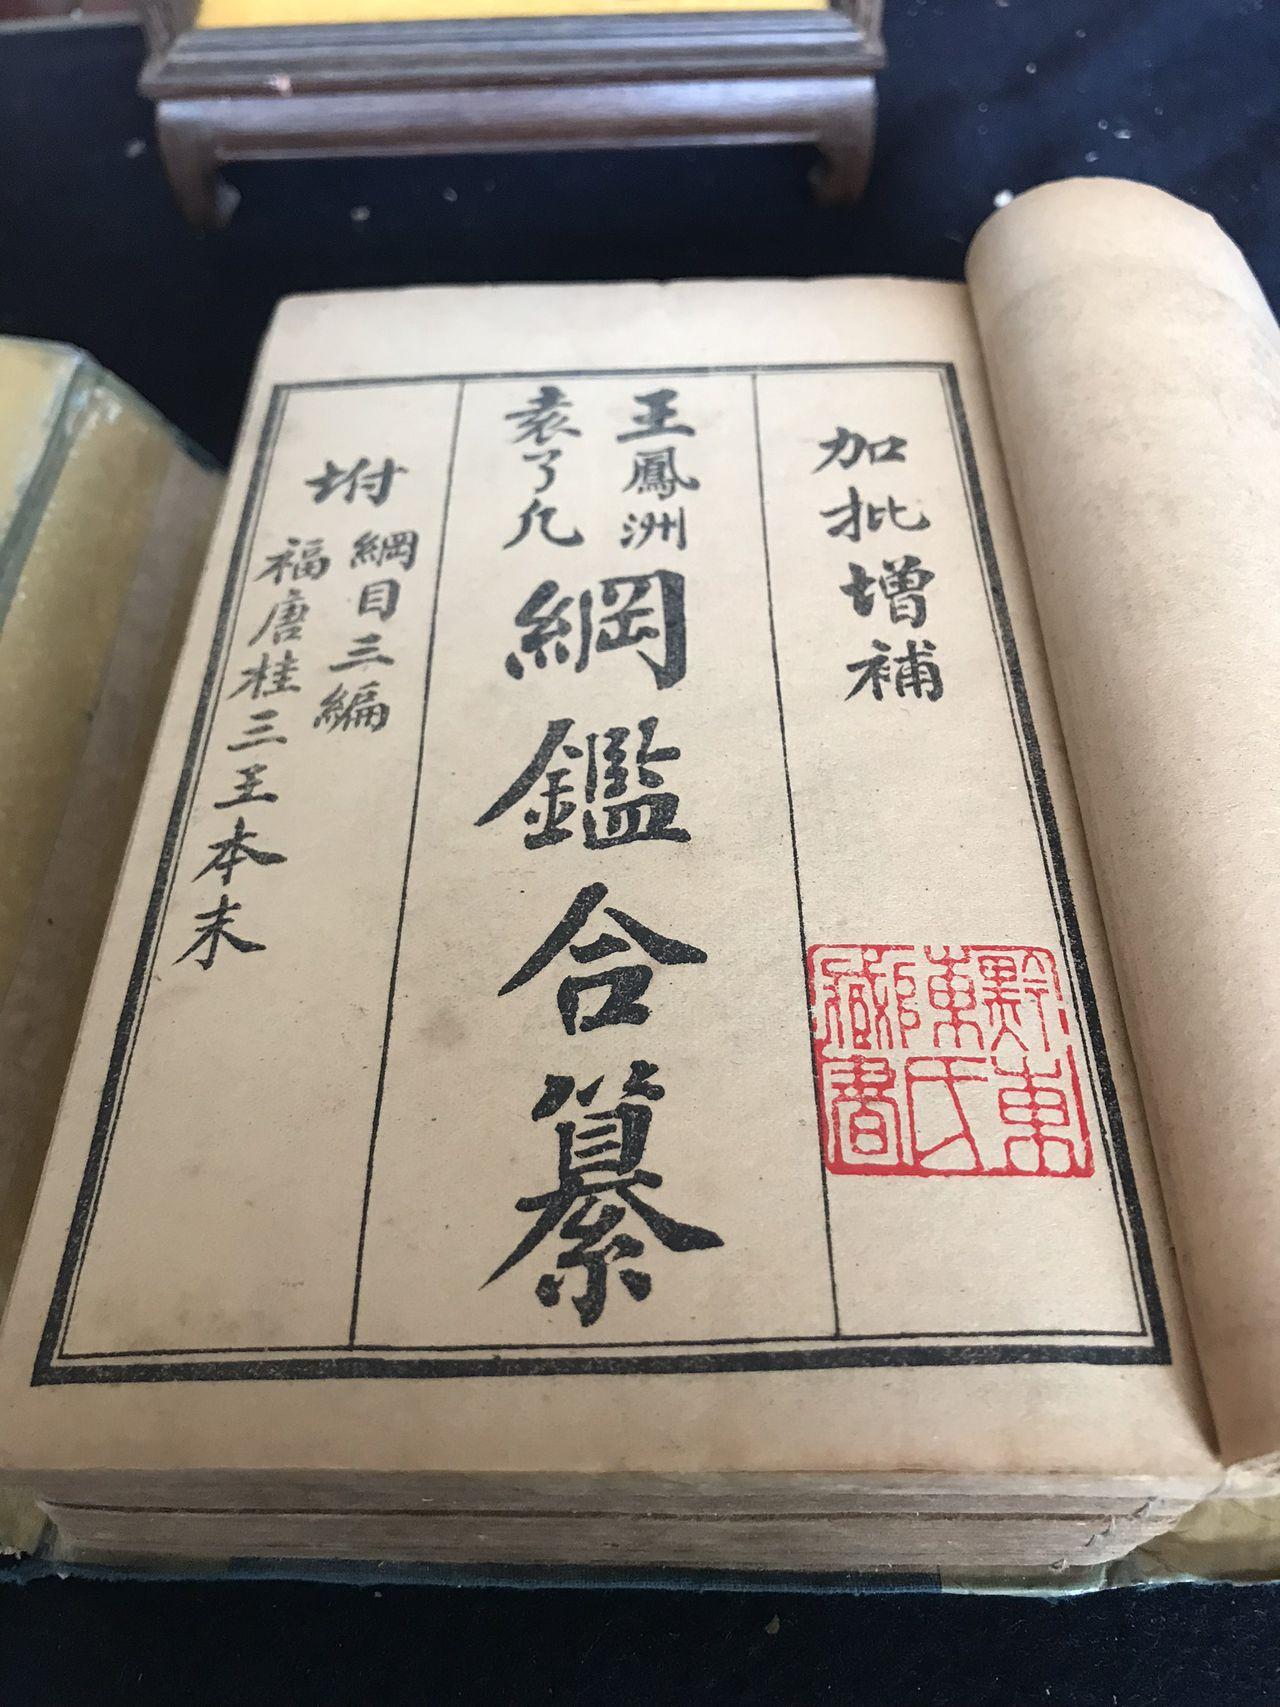 加批增補
王鳳洲
袁了凡
綱鑑合纂
坿
綱目三編
福唐桂三王本末
黔東
陳氏
臧書